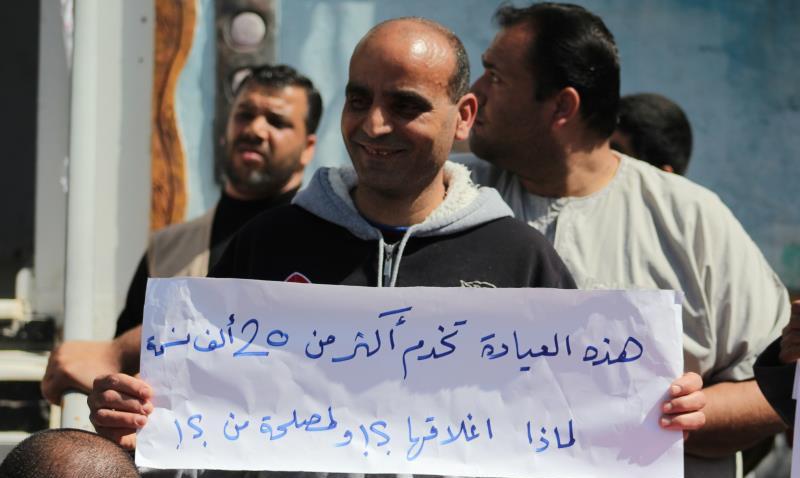 هذه العيادة تخدم أكثر من 20 ألف نسمة
لماذا اغلاقها ؟! ولمصلحة من ؟!